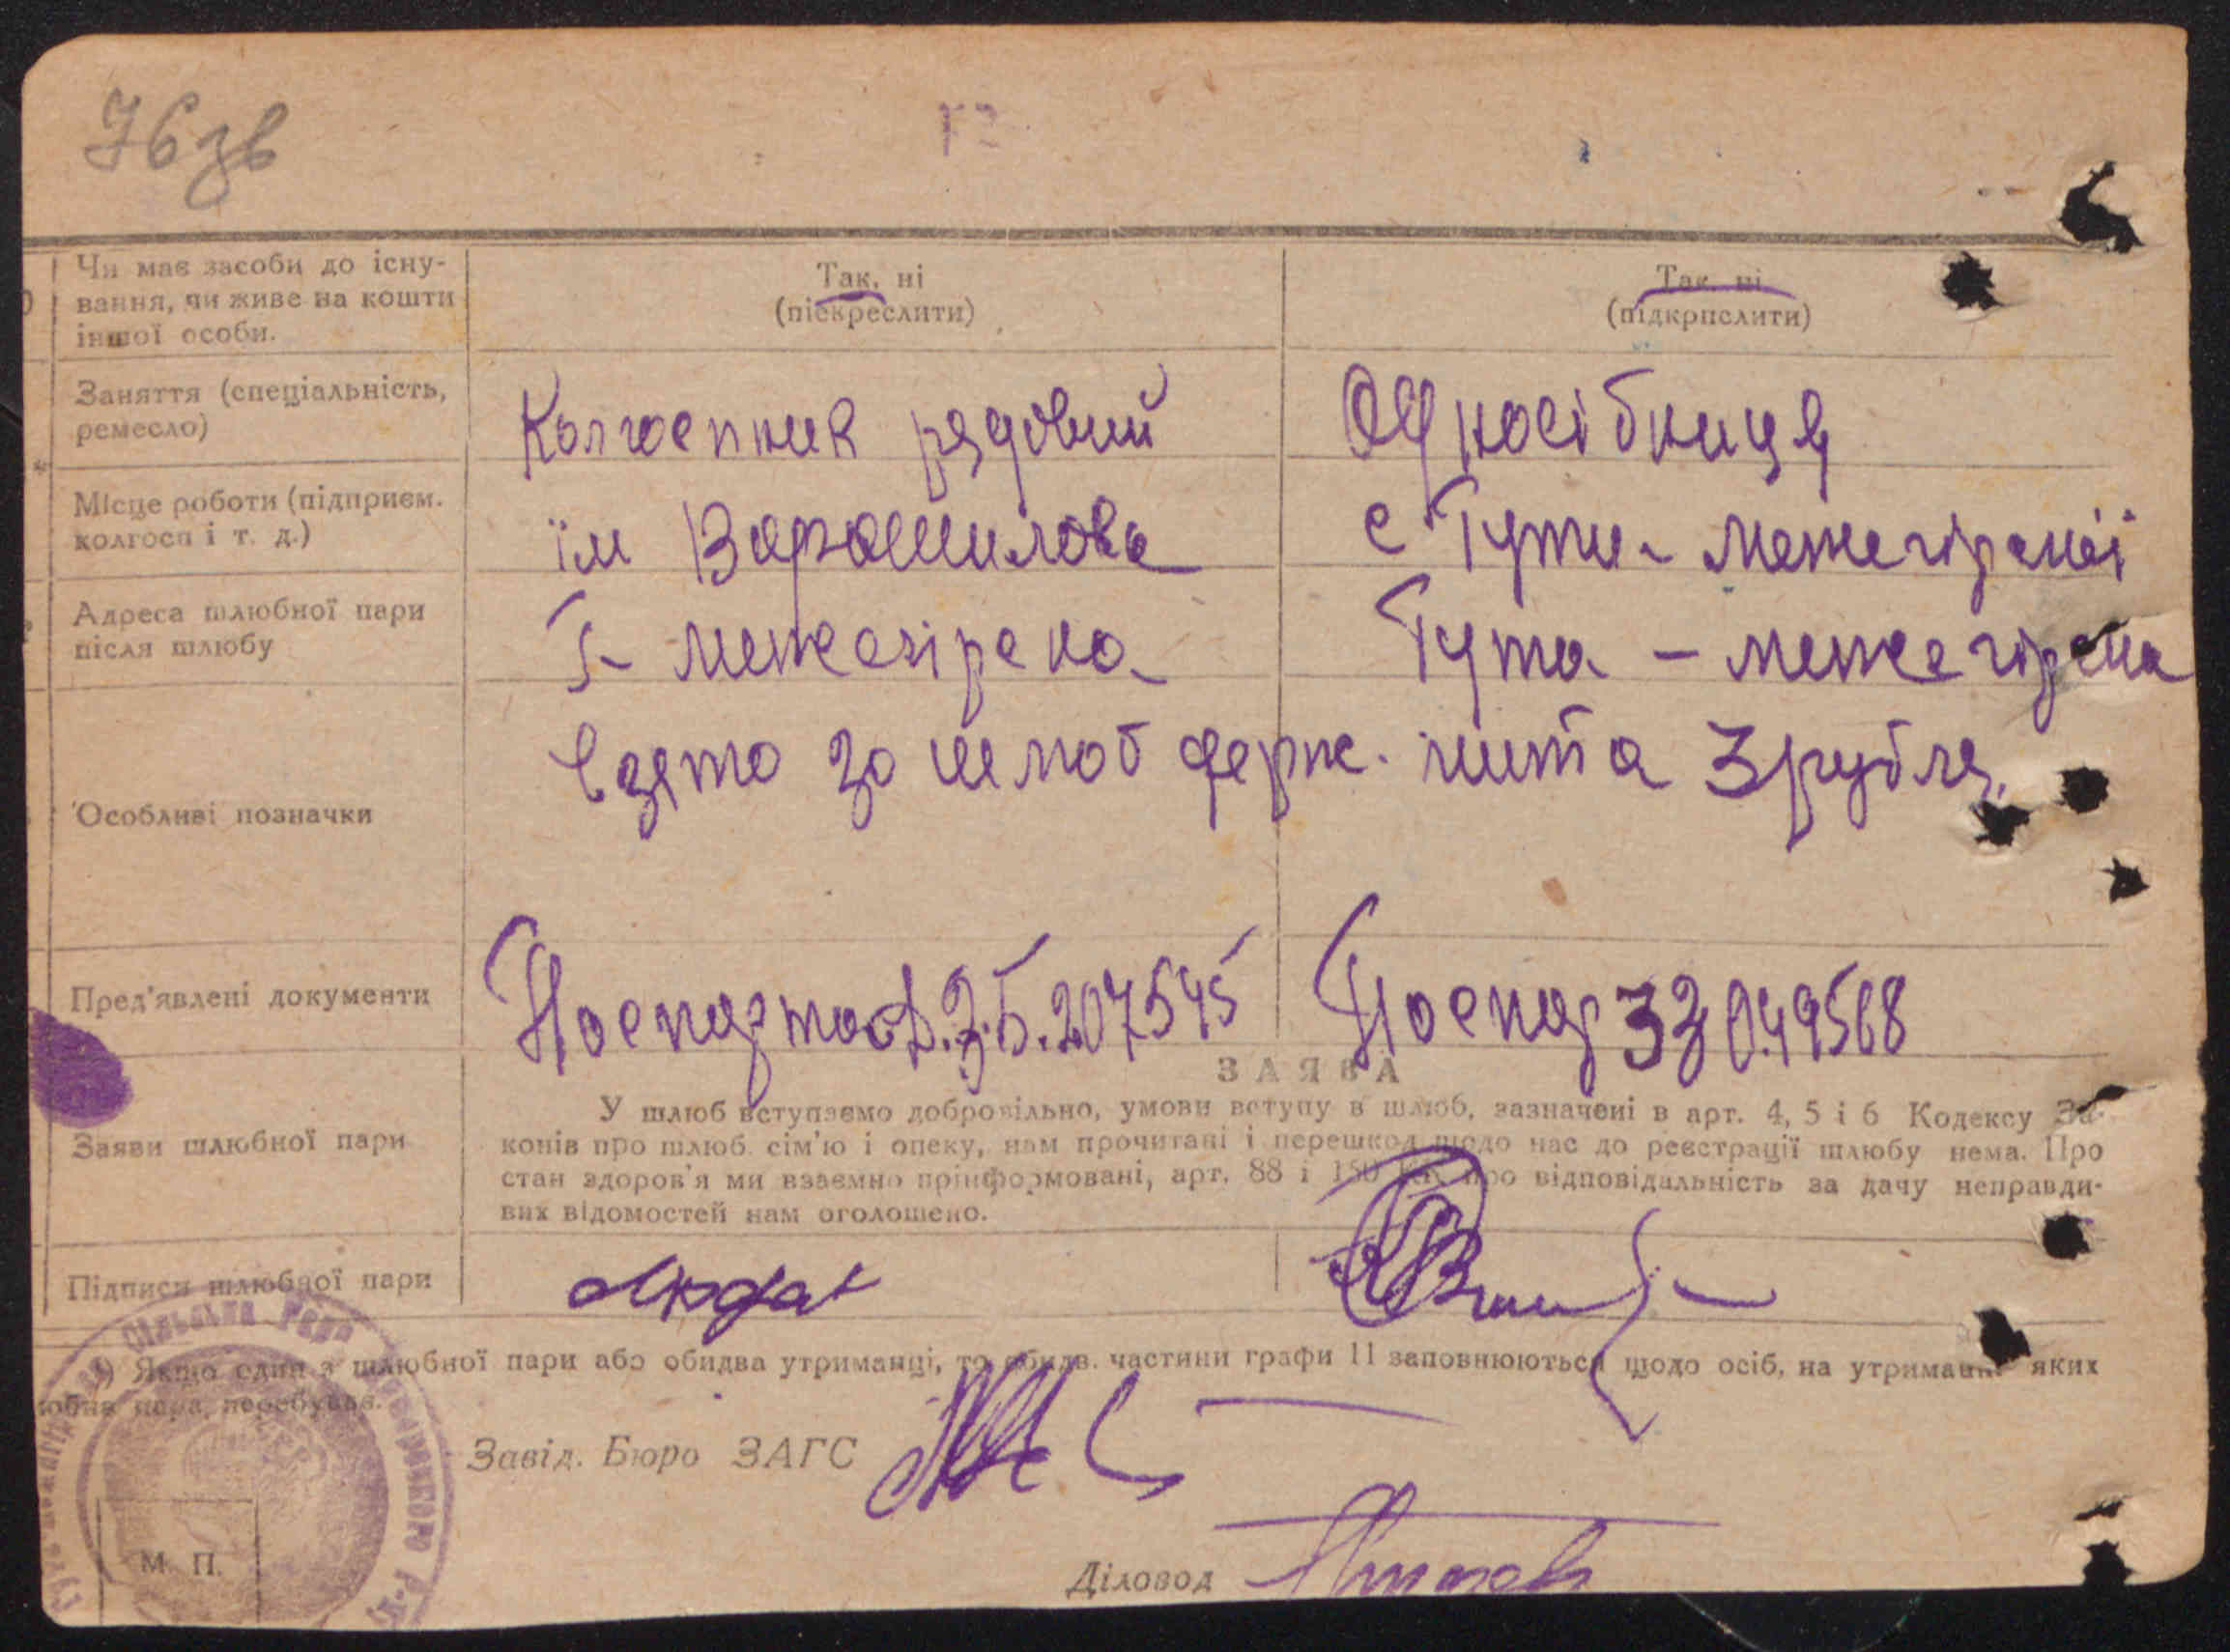 76зв
Чи має засоби до існу-
вання, чи живе на кошти
іншої особи.
Так, ні
(піекреслити)
Так, ні
(підкрпслити)
Заняття (спеціальність,
ремесло)
Колгоспник рядовий
Односібниця
Місце роботи (підприєм.
колгосп і т. д.)
їм Варошилова
с Гути - межегірскі
Адреса шлюбної пари
після шлюбу
Г- межегірска
Гута - межегірска
Особливі позначки
Взято за шлюб держ. мита 3 рубля.
Пред'явлені документи
207545
049568
ЗАЯВА
Заяви шлюбної пари
У шлюб вступаємо добровільно, умови вступу в шлюб, зазначені в арт. 4, 5 і 6 Кодексу За-
конів про шлюб. сім'ю і опеку, нам прочитані і перешкод щодо нас до реєстрації шлюбу нема. Про
стан здоров'я ми взаємно прінформовані, арт. 88 і про відповідальність за дачу неправди-
вих відомостей нам оголошено.
Підписи шлюбної пари
Сільська Рада
) Якщо один з шлюбної пари або обидва утриманці, то обидв. частини графи 11 заповнюються щодо осіб, на утриманні яких
пара, перебуває.
Завід. Бюро ЗАГС
М. П.
Діловод